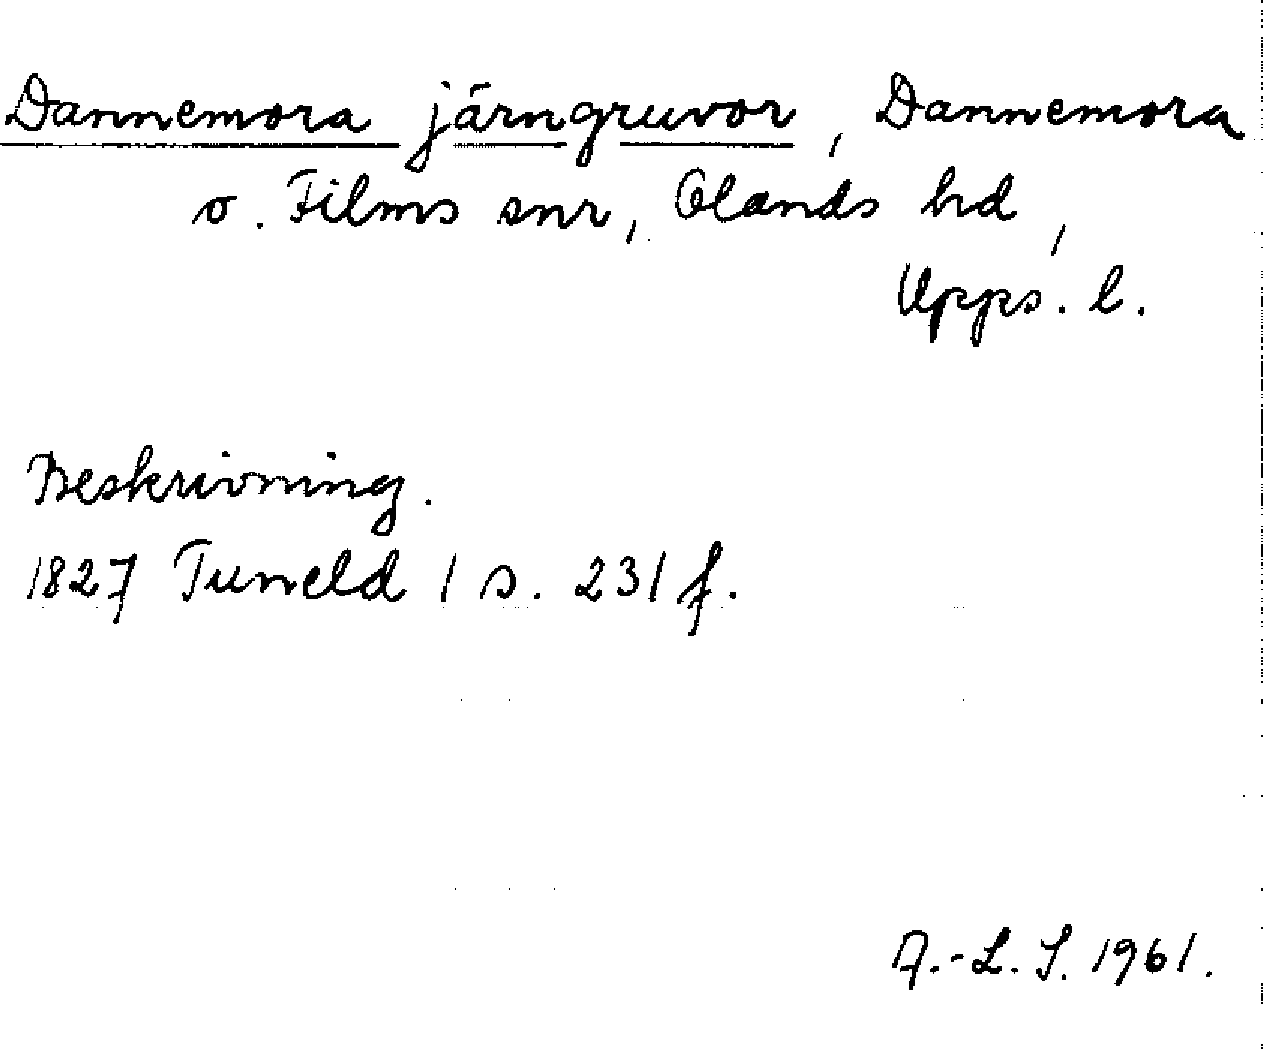 Dannemora järngruvor, Dannemora
o. Films snr, Olands hd,
Upps. l.
Beskrivning.
1827 Tuneld 1 s. 231 f.
A.-L. S. 1961.